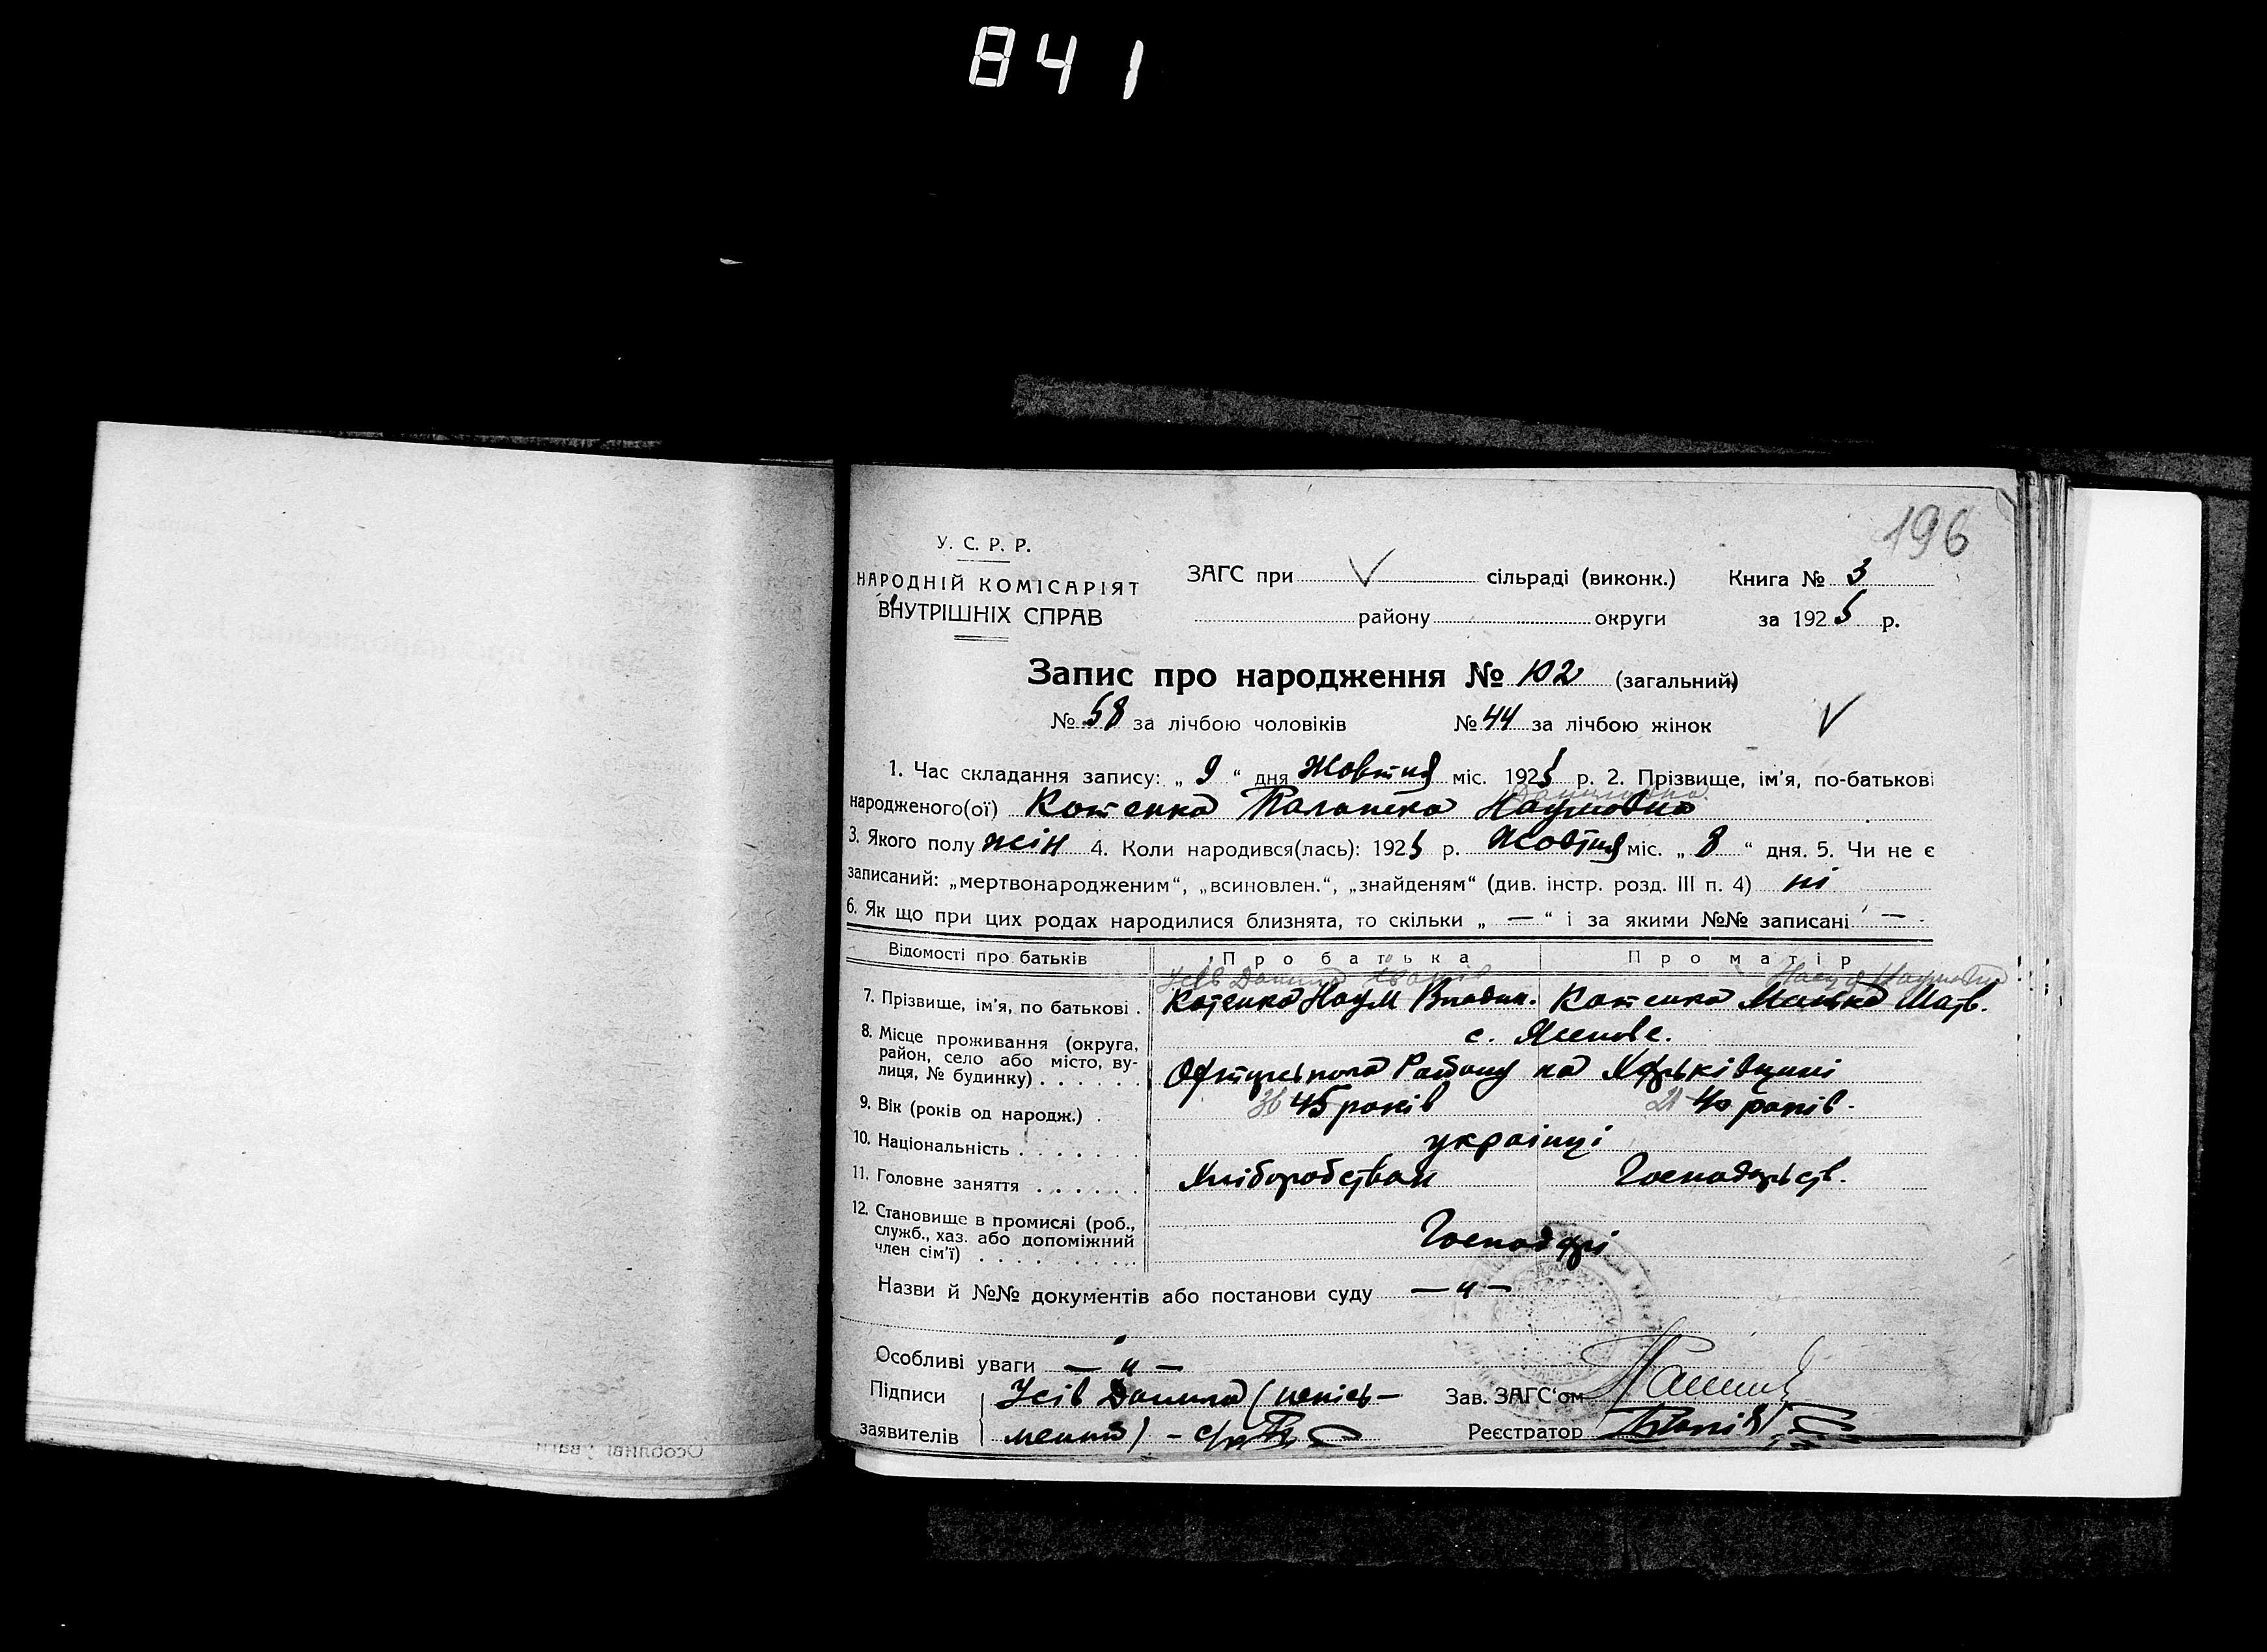 841
196
У. С. Р. Р.
НАРОДНІЙ КОМІСАРІЯТ
ВНУТРІШНІХ СПРАВ
ЗАГС при сільраді (виконк.) Книга № 3
району округи за 1925 р.
Запис про народження № 102 (загальний)
№ 58 за лічбою чоловіків № 44 за лічбою жінок
1. Час складання запису: „ 9 “ дня Жовтня міс. 1925 р. 2. Прізвище, ім’я, по-батькові
Даниловна
народженого(ої) Котенко Палашка Наумовна
3. Якого полу жін 4. Коли народився(лась): 1925 р. Жовтня міс. „ 8 “ дня. 5. Чи не є
записаний: „мертвонародженим“, „всиновлен.“, „знайденям“ (див. інстр. розд. III п. 4) ні
6. Як що при цих родах народилися близнята, то скільки „ — “ і за якими №№ записані —
Відомості про батьків Про батька Про матір
Усів Данило Наумовна
7. Прізвище, ім’я, по батькові . Котенко Наум Котенко Матв.
8. Місце проживання (округа, район, село або місто, вулиця, № будинку) с. Ясенове.
Району на Харьківщині
9. Вік (років од народж.) . 36 45 років 21 40 років.
10. Національність українці
11. Головне заняття Хліборобством Господарств.
12. Становище в промислі (роб., служб., хаз. або допоміжний член сім’ї) Господарі
Назви й №№ документів або постанови суду — „ —
Особливі уваги — „ —
Підписи Усів Данило (непісь-
заявителів менний) -
Зав. ЗАГС‘ом
Реєстратор
Особливі уваги